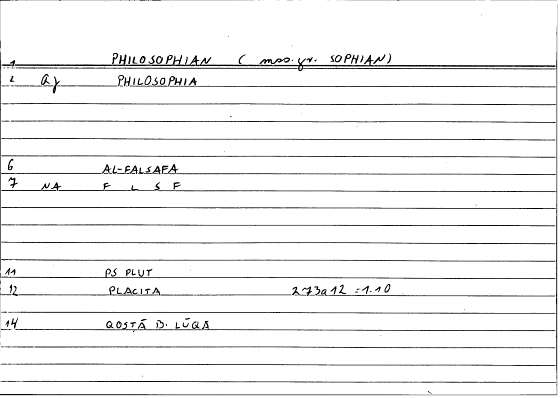 1 PHILOSOPHIAN (mss.gr. SOPHIAN)
2 a) PHILOSOPHIA
6 AL-FALSAFA
7 NA F L S F
11 PS PLUT
12 PLACITA 273a12 = 1.10
14 QOSṬĀ B. LŪQĀ